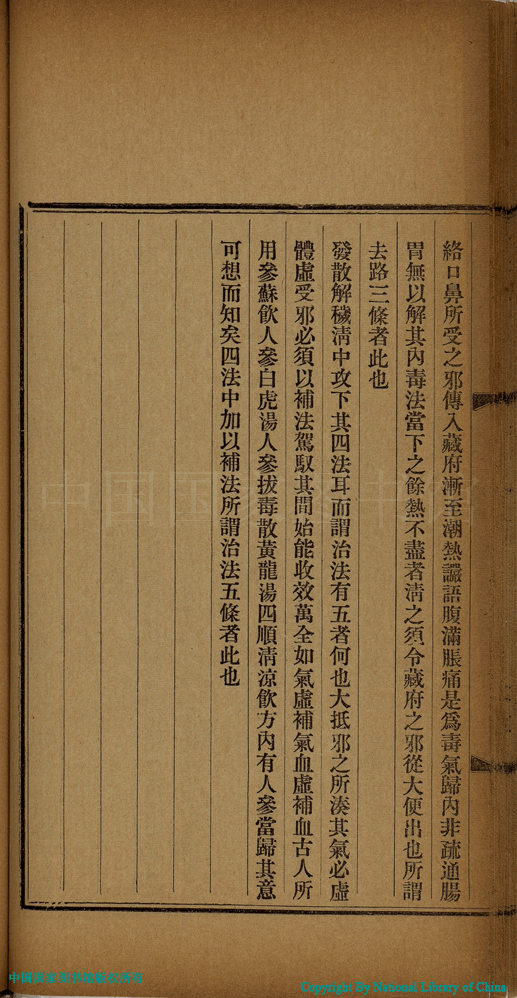 絡口鼻所受之邪傳入藏府漸至潮熱讝語腹滿脹痛是爲毒氣歸內非疏通腸
胃無以解其內毒法當下之餘熱不盡者淸之須令藏府之邪從大便出也所謂
去路三條者此也
發散解穢淸中攻下其四法耳而謂治法有五者何也大抵邪之所湊其氣必虛
體虛受邪必須以補法駕馭其間始能收效萬全如氣虛補氣血虛補血古人所
用參蘇飮人參白虎湯人參拔毒散黃龍湯四順淸涼飮方內有人參當歸其意
可想而知矣四法中加以補法所謂治法五條者此也
中国国家图书馆版权所有
Copyright By National Library of China